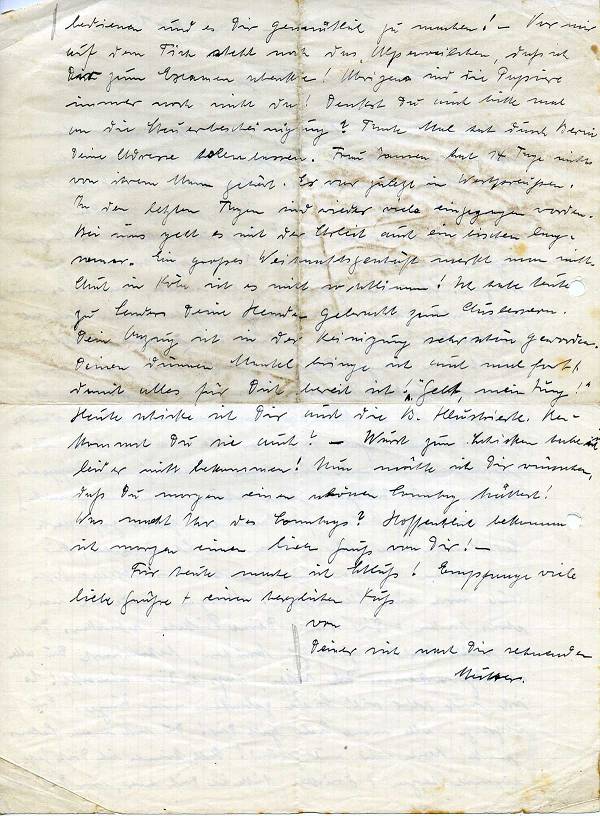 bedienen und es Dir gemütlich zu machen! – Vor mir
auf dem Tisch steht noch das Alpenveilchen, daß ich
Dir zum Examen schenkte! Übrigens sind die Papiere
immer noch nicht da! Denkst Du auch bitte mal
an die Steuerbescheinigung? Tante Mal hat durch
Deine Adresse holen lassen. Frau Jansen hat 14 Tage nichts
von ihrem Mann gehört. Er war zuletzt in Westpreußen.
In den letzten Tagen sind wieder viele eingezogen worden.
Bei uns geht es mit der Arbeit auch ein bischen lang-
samer. Ein großes Weihnachtsgeschäft merkt man nicht.
Auch in Köln ist es nicht so schlimm! Ich habe heute
zu Deine Hemden gebracht zum Ausbessern.
Dein Anzug ist in der Reinigung sehr schön geworden.
Deinen dünnen Mantel bringe ich auch mal fort,
damit alles für Dich bereit ist! "Gelt, mein Jung!"
Heute schicke ich Dir auch die B. Illustrierte. Be-
kommst Du sie auch? – Wurst zum Schicken habe ich
leider nicht bekommen! Nun möchte ich Dir wünschen,
daß Du morgen einen schönen Sonntag hättest!
Was macht Ihr des Sonntags? Hoffentlich bekomme
ich morgen einen lieben Gruß von Dir! –
Für heute mache ich Schluß! Empfange viele
liebe Grüße + einen herzlichen Kuß
von
Deiner sich nach Dir sehnenden
Mutter.